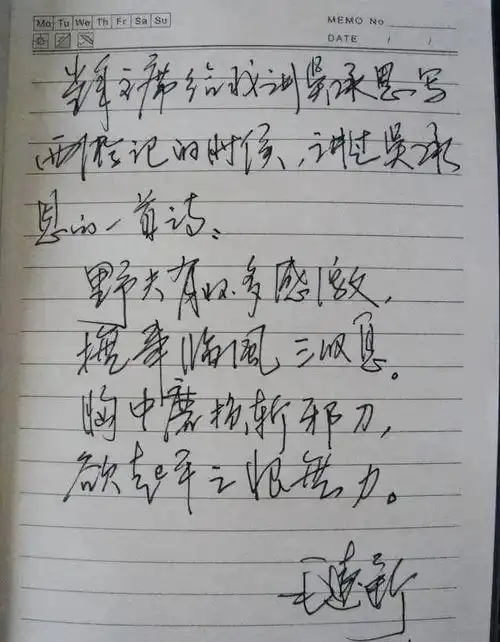 Mo Tu We Th Fr Sa Su
MEMO No
DATE / /
主席给我讲吴承恩写
西游记的时候、讲过吴承
恩的一首诗：
野夫有怀多感激，
抚事临风三叹息。
胸中磨损斩邪刀，
欲起平之恨无力。
毛远新